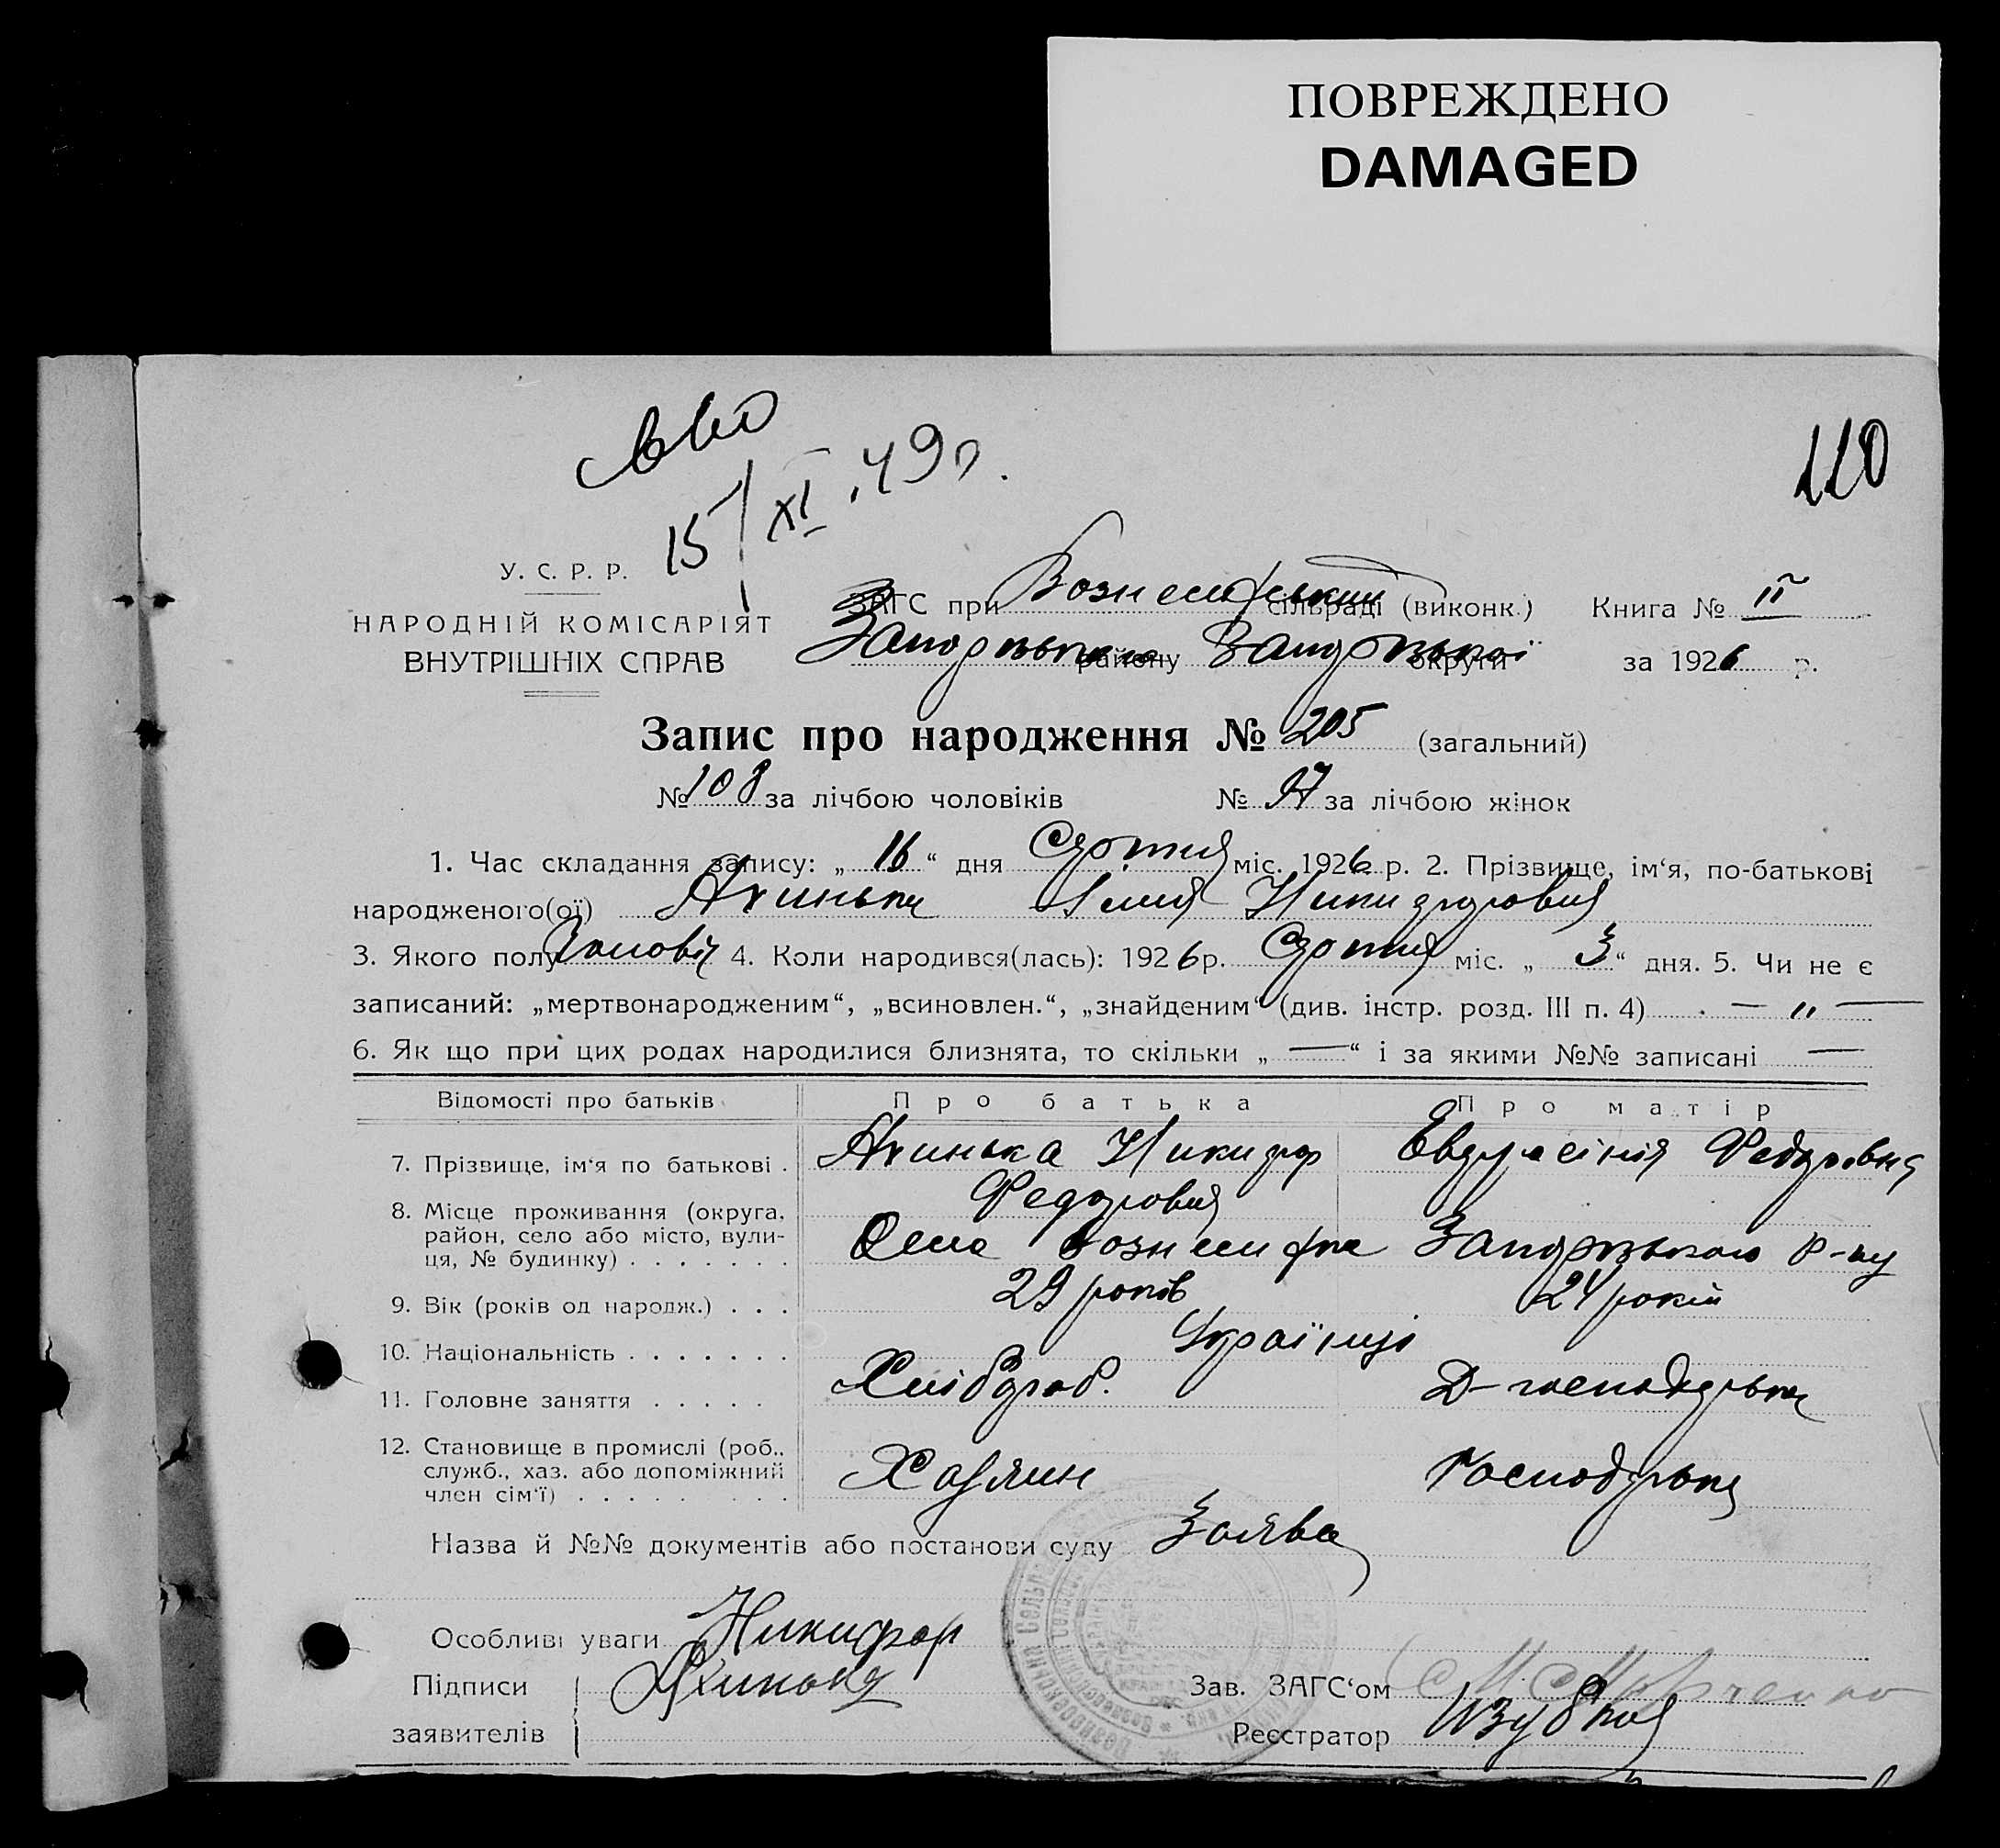 ПОВРЕЖДЕНО
DAMAGED
15/XI.49г.
110
У. С. Р. Р.
НАРОДНІЙ КОМІСАРІЯТ
ВНУТРІШНІХ СПРАВ
ЗАГС при Вознесенський сільраді (виконк.) Книга № II
району округи за 1926 р.
Запис про народження № 205 (загальний)
№ 108 за лічбою чоловіків № 97 за лічбою жінок
1. Час складання запису: „ 16 “ дня Серпня міс. 1926 р. 2. Прізвище, ім‘я, по-батькові
народженого(ої) Яхинька Никифорович
3. Якого полу Чоловіч 4. Коли народився(лась): 1926 р. Серпня міс. „ 3 “ дня. 5. Чи не є
записаний: „мертвонародженим“, „всиновлен.“, „знайденим“ (див. інстр. розд. III п. 4) — „ —
6. Як що при цих родах народилися близнята, то скільки „ — “ і за якими №№ записані —
Відомості про батьків Про батька Про матір
7. Прізвище, ім‘я по батькові . Яхинька Никифор Евдросінія Федоровна
Федорович
8. Місце проживання (округа,
район, село або місто, вули-
ця, № будинку) . . . . . . . Села Вознесенка Запорізького р-ну
9. Вік (років од народж.) . . . 29 років 24 років
10. Національність . . . . . . . Українці
11. Головне заняття . . . . . Хлібороб. Д-господарька
12. Становище в промислі (роб.,
служб., хаз. або допоміжний
член сім‘ї) . . . . . . . . Хазяин Господарька
Назва й №№ документів або постанови суду Заява
Особливі уваги Никифор
Підписи Яхинька
заявителів
Зав. ЗАГС‘ом
Реєстратор